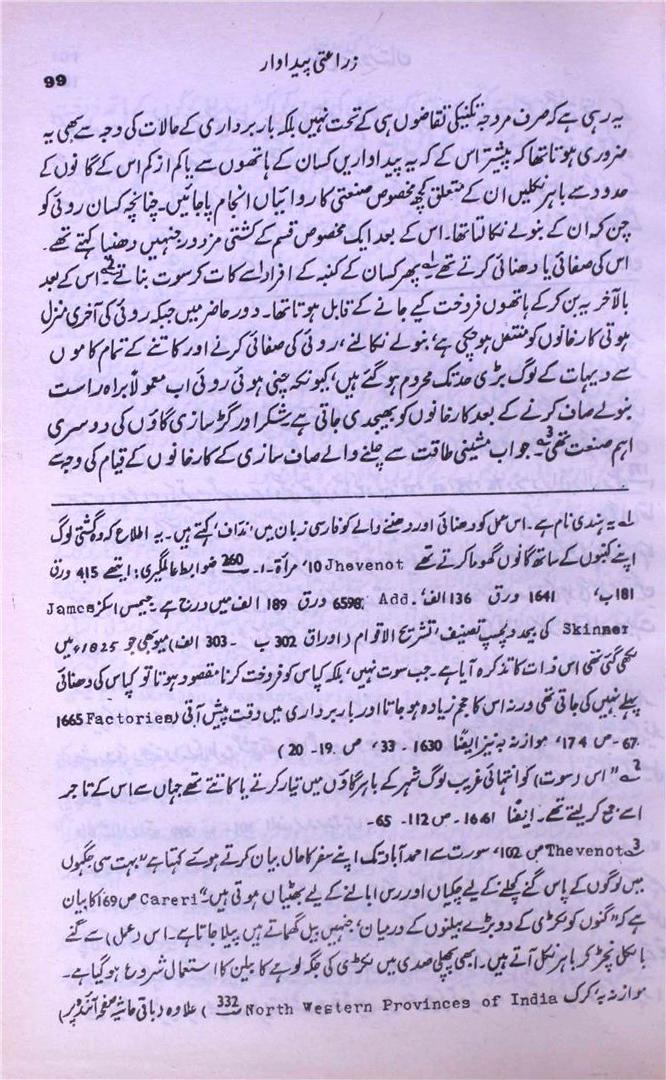 زراعتی پیداوار
99
یہ رہی ہے کہ صرف مروجہ تکنیکی تقاضوں ہی کے تحت نہیں بلکہ باربرداری کے حالات کی وجہ سے بھی یہ
ضروری ہوتا تھا کہ پیشتر اس کے کہ یہ پیداواریں کسان کے ہاتھوں سے یا کم از کم اس کے گانوں کے
حدود سے باہر نکلیں ان کے متعلق کچھ مخصوص صنعتی کاروائیاں انجام پاجائیں۔ چنانچہ کسان روئی کو
چن کر ان کے بنولے نکالتا تھا۔ اس کے بعد ایک مخصوص قسم کے گشتی مزدور جنہیں دھنیا کہتے تھے۔
اس کی صفائی یا دھنائی کرتے تھے ؎1 پھر کسان کے کنبہ کے افراد اسے کات کر سوت بناتے ؎2 اس کے بعد
بالآخر یہ بن کر کے ہاتھوں فروخت کیے جانے کے قابل ہوتا تھا۔ دور حاضر میں جبکہ روئی کی آخری منزل
ہوتی کارخانوں کو منتقل ہوچکی ہے، بنولے نکالنے، روئی کی صفائی کرنے اور کاتنے کے تمام کاموں
سے دیہات کے لوگ بڑی حد تک محروم ہوگئے ہیں، کیونکہ چنی ہوئی روئی اب معمولاً براہ راست
بنولے صاف کرنے کے بعد کارخانوں کو بھیجدی جاتی ہے۔ شکر اور گڑ سازی گاؤں کی دوسری
اہم صنعت تھی ؎3۔ جو اب مشینی طاقت سے چلنے والے صاف سازی کے کارخانوں کے قیام کی وجہ سے
؎1 یہ ہندی نام ہے۔ اس عمل کو دھنائی اور دھننے والے کو فارسی زبان میں 'نداف' کہتے ہیں۔ یہ اطلاع کہ وہ گشتی لوگ
اپنے کنبوں کے ساتھ گانوں گھوما کرتے تھے Jhevenot 10، مرأة۔ا۔ 260 ضوابط عالمگیری: ایتھے 415 ورق
181 ب، 1641 ورق 136 الف، Add. 6598، ورق 189 الف میں درج ہے۔ جیمس اسکنر James
Skinner کی بیحد دلچسپ تصنیف، تشریح الاقوام (اوراق 302 ب ۔ 303 الف) میں بھی جو 1825ء میں
لکھی گئی تھی اس ذات کا تذکرہ آیا ہے۔ جب سوت نہیں، بلکہ کپاس کو فروخت کرنا مقصود ہوتا تو کپاس کی دھنائی
پہلے نہیں کی جاتی تھی ورنہ اس کا حجم زیادہ ہوجاتا اور باربرداری میں دقت پیش آتی (Factories 1665
67- ص 174، موازنہ بہ نیز ایضاً 1630 - 33، ص 19۔ 20 )
؎2 " اس (سوت) کو انتہائی غریب لوگ شہر کے باہر گاؤں میں تیار کرتے یا کاتتے تھے جہاں سے اس کے تاجر
اسے جمع کرلیتے تھے۔ ایضاً 1661 - ص 112۔ 65-
؎3 Thevenot ص 102، سورت سے احمدآباد تک اپنے سفر کا حال بیان کرتے ہوئے کہتا ہے "بہت سی جگہوں
میں لوگوں کے پاس گنے کچلنے کے لیے چکیاں اور رس ابالنے کے لیے بھٹیاں ہوتی ہیں۔" Careri ص 169 کا بیان
ہے کہ "گنوں کو لکڑی کے دو بڑے بیلنوں کے درمیان، جنہیں بیل گھماتے ہیں پیلا جاتا ہے۔ اس (عمل) سے گنے
بالکل نچڑ کر باہر نکل آتے ہیں۔ ابھی پچھلی صدی میں لکڑی کی جگہ لوہے کا بیلن کا استعمال شروع ہوگیا ہے۔
موازنہ بہ کرک North Western Provinces of India 332 ) علاوہ (باقی حاشیہ صفحہ آئندہ پر)